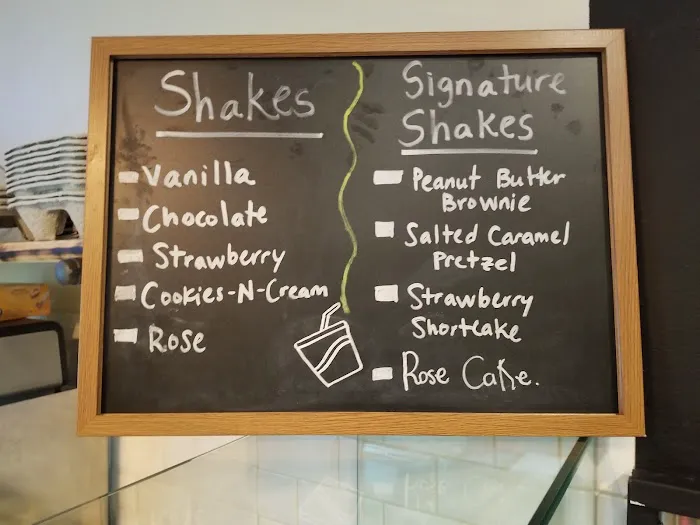 Shakes
Vanilla
Chocolate
Strawberry
Cookies-N-Cream
Rose
Signature
Shakes
Peanut Butter
Brownie
Salted Caramel
Pretzel
Strawberry
Shortcake
Rose Cake.